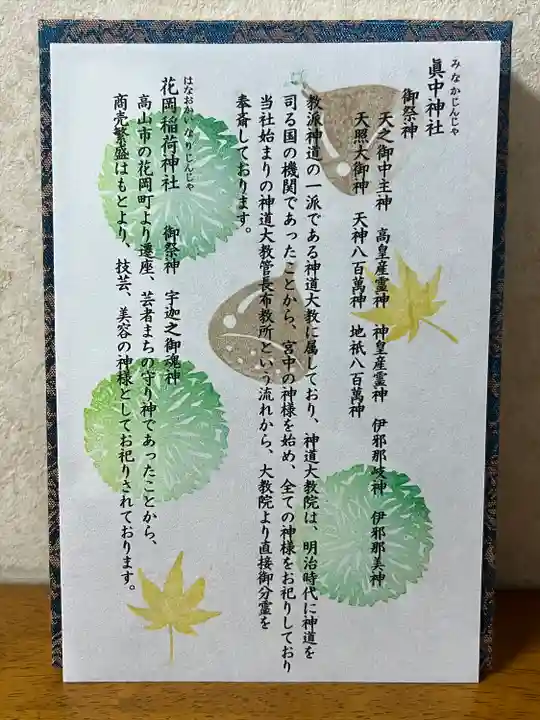 みなかじんじゃ
眞中神社
御祭神
天之御中主神 高皇産霊神 神皇産霊神 伊邪那岐神 伊邪那美神
天照大御神 天神八百萬神 地祇八百萬神
教派神道の一派である神道大教に属しており、神道大教院は、明治時代に神道を
司る国の機関であったことから、宮中の神様を始め、全ての神様をお祀りしており
当社始まりの神道大教管長布教所という流れから、大教院より直接御分霊を
奉斎しております。
はなおかいなりじんじゃ
花岡稲荷神社 御祭神 宇迦之御魂神
高山市の花岡町より遷座、芸者まちの守り神であったことから、
商売繁盛はもとより、技芸、美容の神様としてお祀りされております。